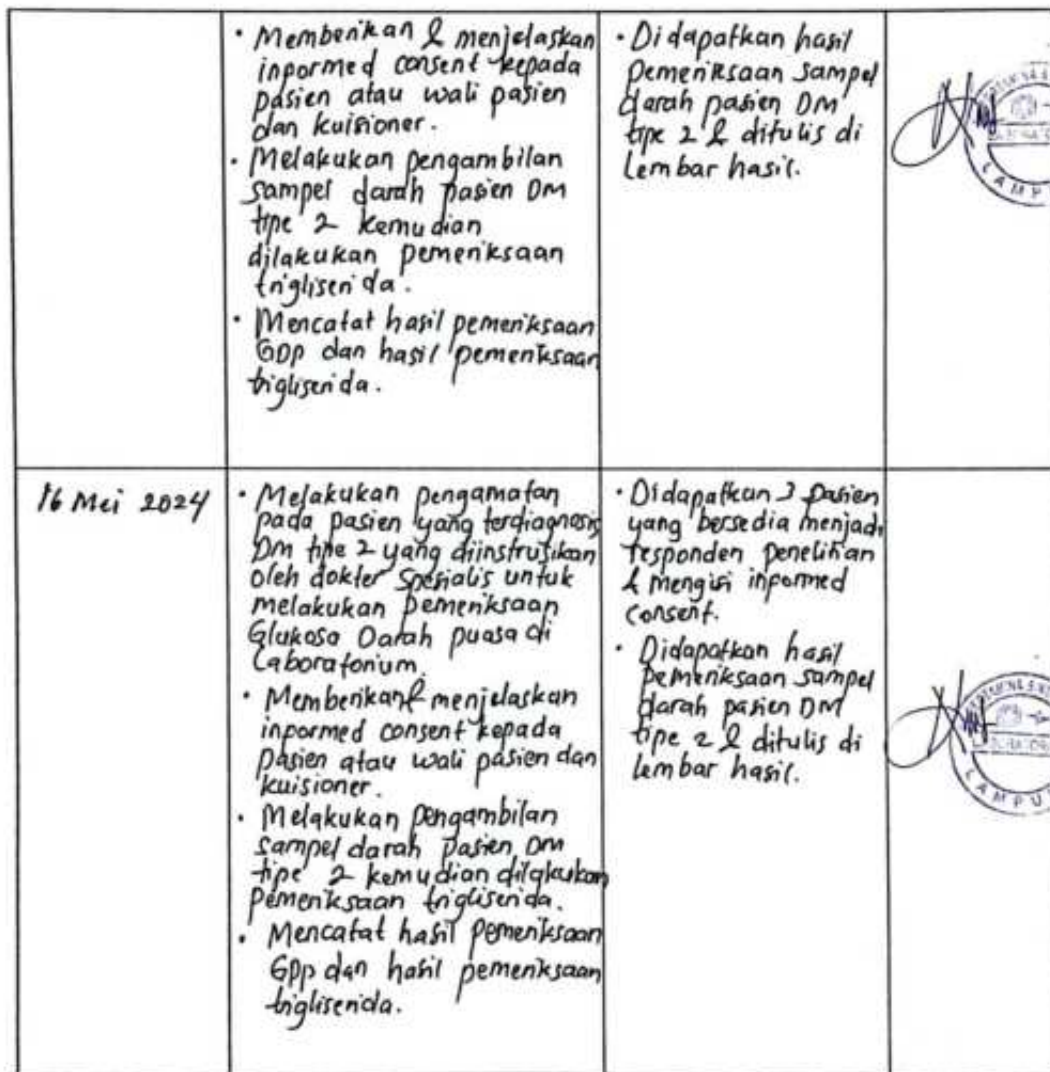 • Memberikan & menjelaskan
inpormed consent kepada
pasien atau wali pasien
dan kuisioner.
• Melakukan pengambilan
sampel darah pasien DM
tipe 2 kemudian
dilakukan pemeriksaan
trigliserida.
• Mencatat hasil pemeriksaan
GDP dan hasil pemeriksaan
trigliserida.
• Didapatkan hasil
pemeriksaan sampel
darah pasien DM
tipe 2 & ditulis di
lembar hasil.
LAMP
16 Mei 2024
• Melakukan pengamatan
pada pasien yang terdiagnosis
DM tipe 2 yang diinstruksikan
oleh dokter spesialis untuk
melakukan pemeriksaan
Glukosa Darah puasa di
Laboratorium.
• Memberikan & menjelaskan
inpormed consent kepada
pasien atau wali pasien dan
kuisioner.
• Melakukan pengambilan
sampel darah pasien DM
tipe 2 kemudian dilakukan
pemeriksaan trigliserida.
• Mencatat hasil pemeriksaan
GDP dan hasil pemeriksaan
trigliserida.
• Didapatkan 3 pasien
yang bersedia menjadi
responden penelitian
& mengisi inpormed
consent.
• Didapatkan hasil
pemeriksaan sampel
darah pasien DM
tipe 2 & ditulis di
lembar hasil.
LAMPU